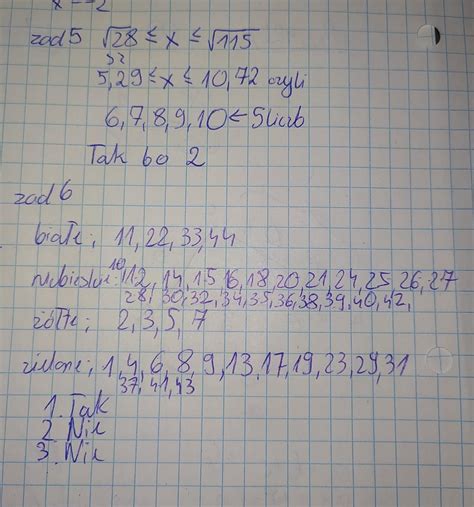 x = -2
zad 5 √28 ≤ x ≤ √115
5,29 ≤ x ≤ 10,72 czyli
6,7,8,9,10 ← 5 liczb
Tak bo 2
zad 6
białe; 11,22,33,44
niebieskie: 10, 12, 14, 15 16, 18, 20, 21, 24, 25, 26, 27
28, 30, 32, 34, 35, 36, 38, 39, 40, 42,
żółte; 2, 3, 5, 7
zielone; 1, 4, 6, 8, 9, 13, 17, 19, 23, 29, 31
37, 41, 43
1. Tak
2. Nie
3. Nie